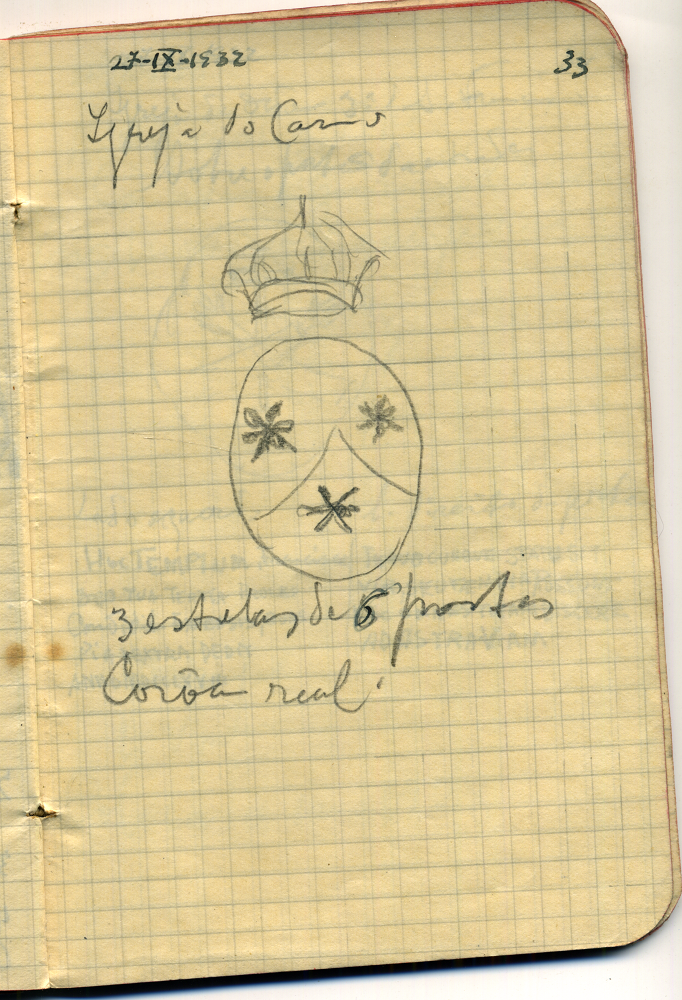 27-IX-1932
33
Igreja do Carmo
3 estrelas de 6 pontas
Corôa real.